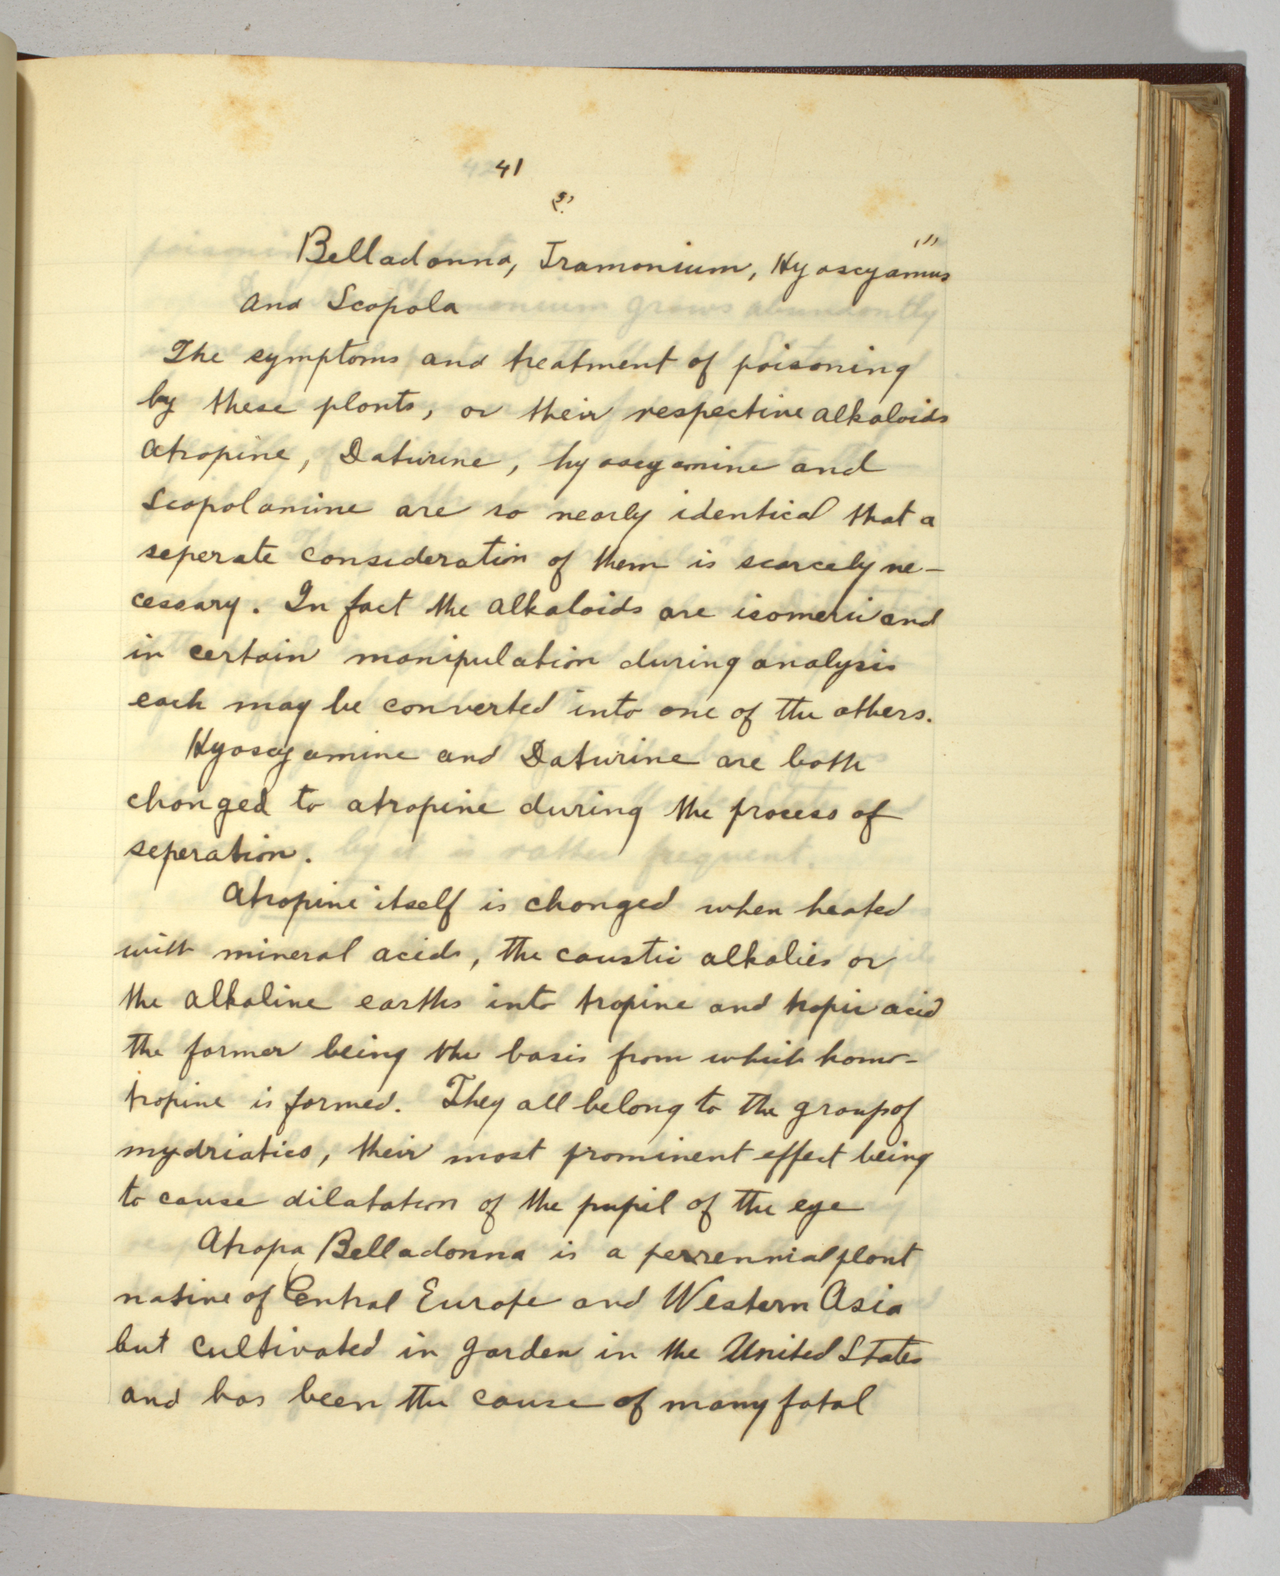 41
Belladonna, Tramonium, Hyoscyamus
and Scopola
The symptoms and treatment of poisoning
by these plants, or their respective alkaloids
atropine, Daturine, hyoscyamine and
scopolamine are so nearly identical that a
seperate consideration of them is scarcely ne-
cessary. In fact the alkaloids are isomeric and
in certain manipulation during analysis
each may be converted into one of the others.
Hyoscyamine and Daturine are both
changed to atropine during the process of
seperation.
Atropine itself is changed when heated
with mineral acids, the caustic alkalies or
the alkaline earths into tropine and tropic acid
the former being the basis from which homo-
tropine is formed. They all belong to the group of
mydriatics, their most prominent effect being
to cause dilatation of the pupil of the eye
Atropa Belladonna is a perrennial plant
native of Central Europe and Western Asia
but cultivated in garden in the United States
and has been the cause of many fatal